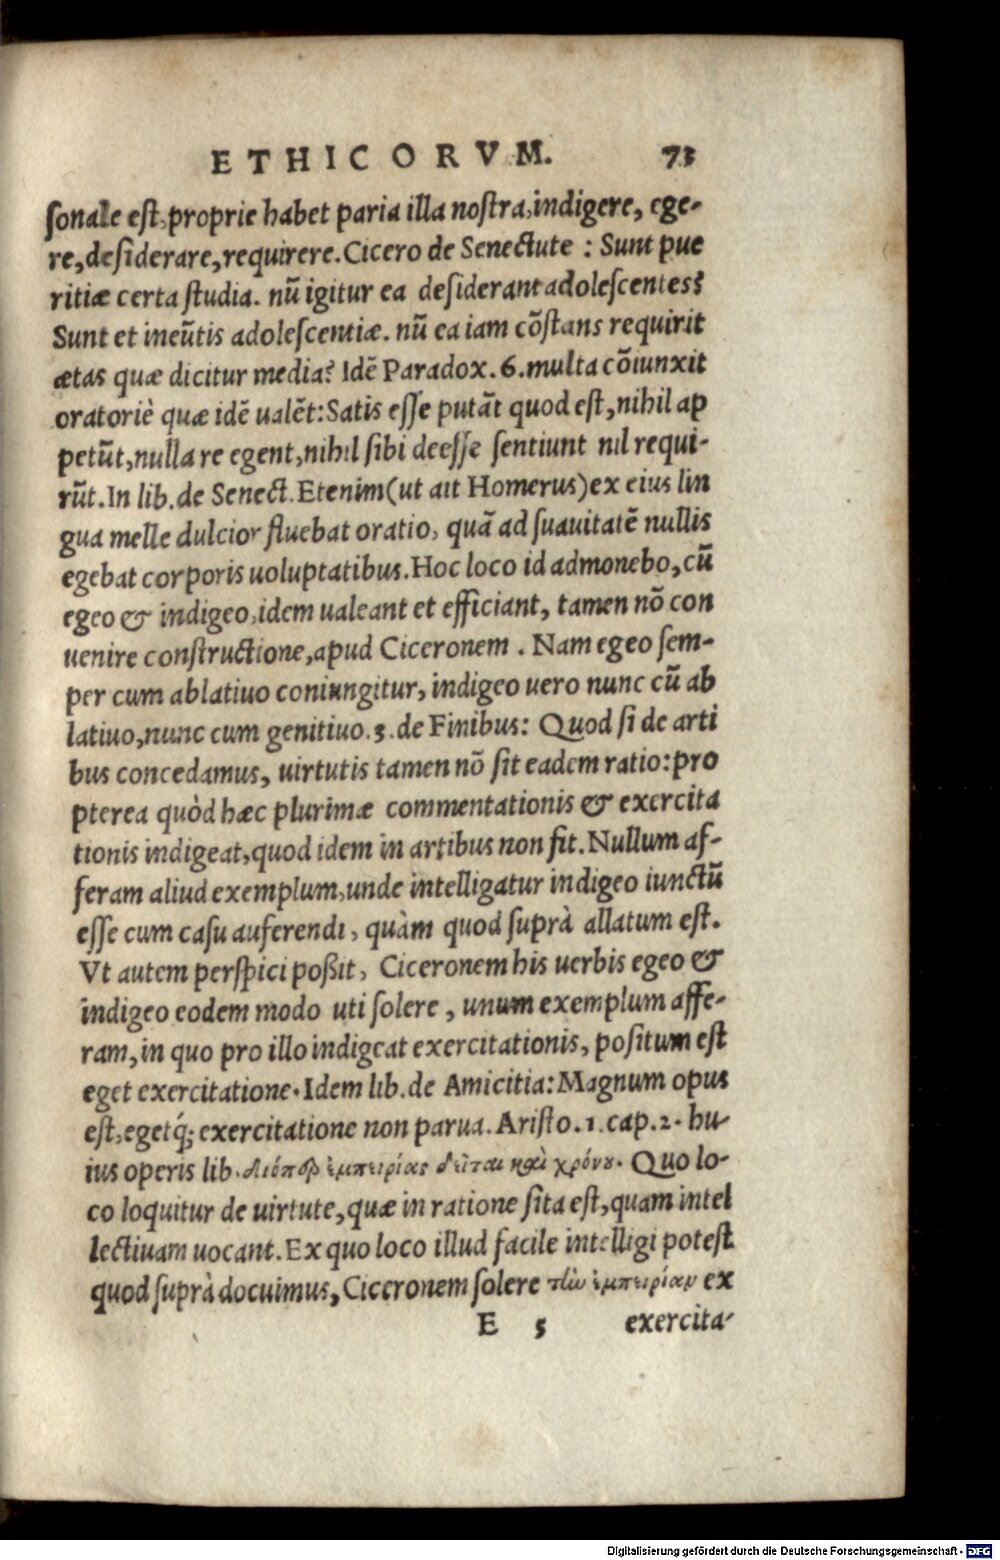 ETHICORVM. 73
ſonale eſt, proprie habet paria illa noſtra, indigere, ege-
re, deſiderare, requirere. Cicero de Senectute : Sunt pue
ritiæ certa ſtudia. nũ igitur ea deſiderant adoleſcentes?
Sunt et ineũtis adoleſcentiæ. nũ ea iam cõſtans requirit
ætas quæ dicitur media? Idẽ Paradox. 6. multa cõiunxit
oratoriè quæ idẽ ualẽt: Satis eſſe putãt quod eſt, nihil ap
petũt, nulla re egent, nihil ſibi deeſſe ſentiunt nil requi-
rũt. In lib. de Senect. Etenim (ut ait Homerus) ex eius lin
gua melle dulcior fluebat oratio, quã ad ſuauitatẽ nullis
egebat corporis uoluptatibus. Hoc loco id admonebo, cũ
egeo & indigeo, idem ualeant et efficiant, tamen nõ con
uenire conſtructione, apud Ciceronem . Nam egeo ſem-
per cum ablatiuo coniungitur, indigeo uero nunc cũ ab
latiuo, nunc cum genitiuo. 3. de Finibus: Quod ſi de arti
bus concedamus, uirtutis tamen nõ ſit eadem ratio: pro
pterea quòd hæc plurimæ commentationis & exercita
tionis indigeat, quod idem in artibus non fit. Nullum af-
feram aliud exemplum, unde intelligatur indigeo iunctũ
eſſe cum caſu auferendi, quàm quod ſuprà allatum eſt.
Vt autem perſpici poßit, Ciceronem his uerbis egeo &
indigeo eodem modo uti ſolere, unum exemplum affe-
ram, in quo pro illo indigeat exercitationis, poſitum eſt
eget exercitatione. Idem lib. de Amicitia: Magnum opus
eſt, egetq́; exercitatione non parua. Ariſto. 1. cap. 2. hu-
ius operis lib. διόπερ ἐμπειρίας δεῖται καὶ χρόνου. Quo lo-
co loquitur de uirtute, quæ in ratione ſita eſt, quam intel
lectiuam uocant. Ex quo loco illud facile intelligi poteſt
quod ſuprà docuimus, Ciceronem ſolere τὴν ἐμπειρίαν ex
E 5 exercita-
Digitalisierung gefördert durch die Deutsche Forschungsgemeinschaft - DFG